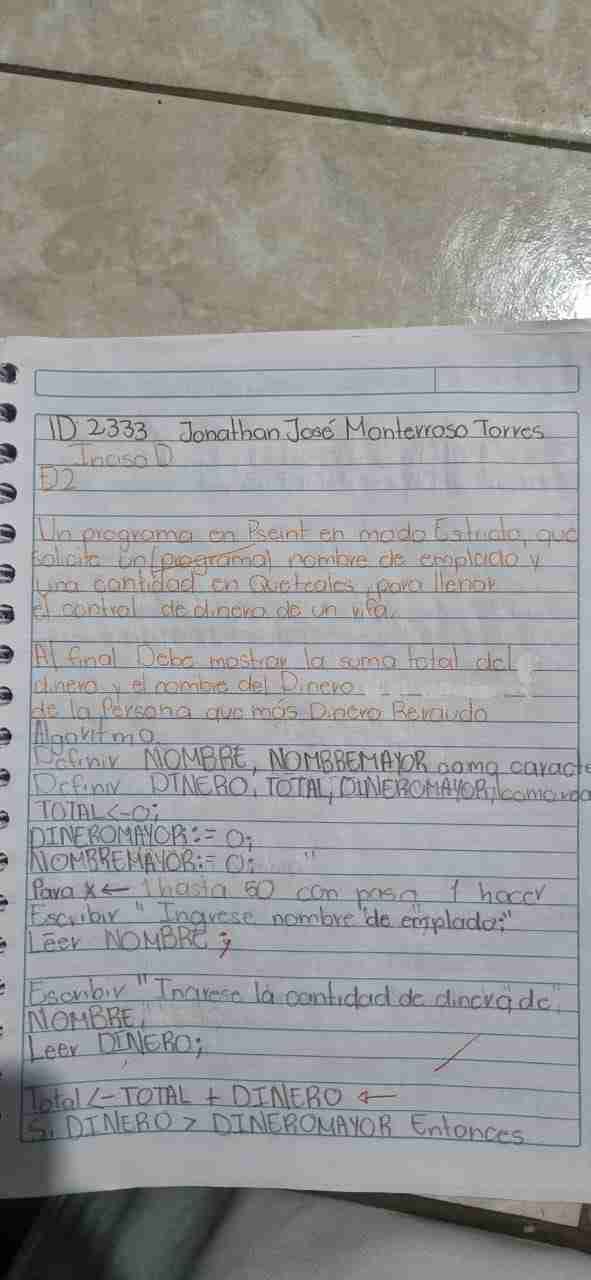 ID 2333 Jonathan José Monterroso Torres
Inciso D
D2
Un programa en Pseint en modo Estricto, que
solicite un (programa) nombre de emplado y
una cantidad en Quetzales para llenar
el control de dinero de un rifa.
Al final Debe mostrar la suma total del
dinero y el nombre del Dinero
de la Persona que más Dinero
Algoritmo
Definir NOMBRE, NOMBREMAYOR como caracte
Definir DINERO, TOTAL, DINEROMAYOR,
TOTAL<-0;
DINEROMAYOR:= 0;
NOMBREMAYOR:= 0; "
Para x ← 1 hasta 50 con paso 1 hacer
Escribir "Ingrese nombre de emplado;"
Leer NOMBRE;
Escribir "Ingrese la cantidad de dinero de",
NOMBRE,
Leer DINERO;
Total <- TOTAL + DINERO ←
Si DINERO > DINEROMAYOR Entonces